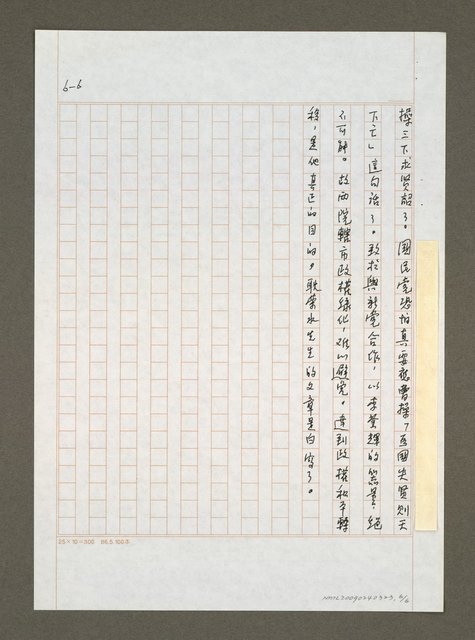 6-6
操三下求賢詔了。國民黨恐怕真要應曹操「吾國失賢則天
下亡」這句話了。致於與新黨合作,以李登輝的器量,絕
不可能。故兩院轄市政權綠化,难以避免。達到政權和平轉
移,是他真正的目的,耿榮水先生的文章是白寫了。
25×10=300 86.5.100本
NMTL20090240323, 6/6